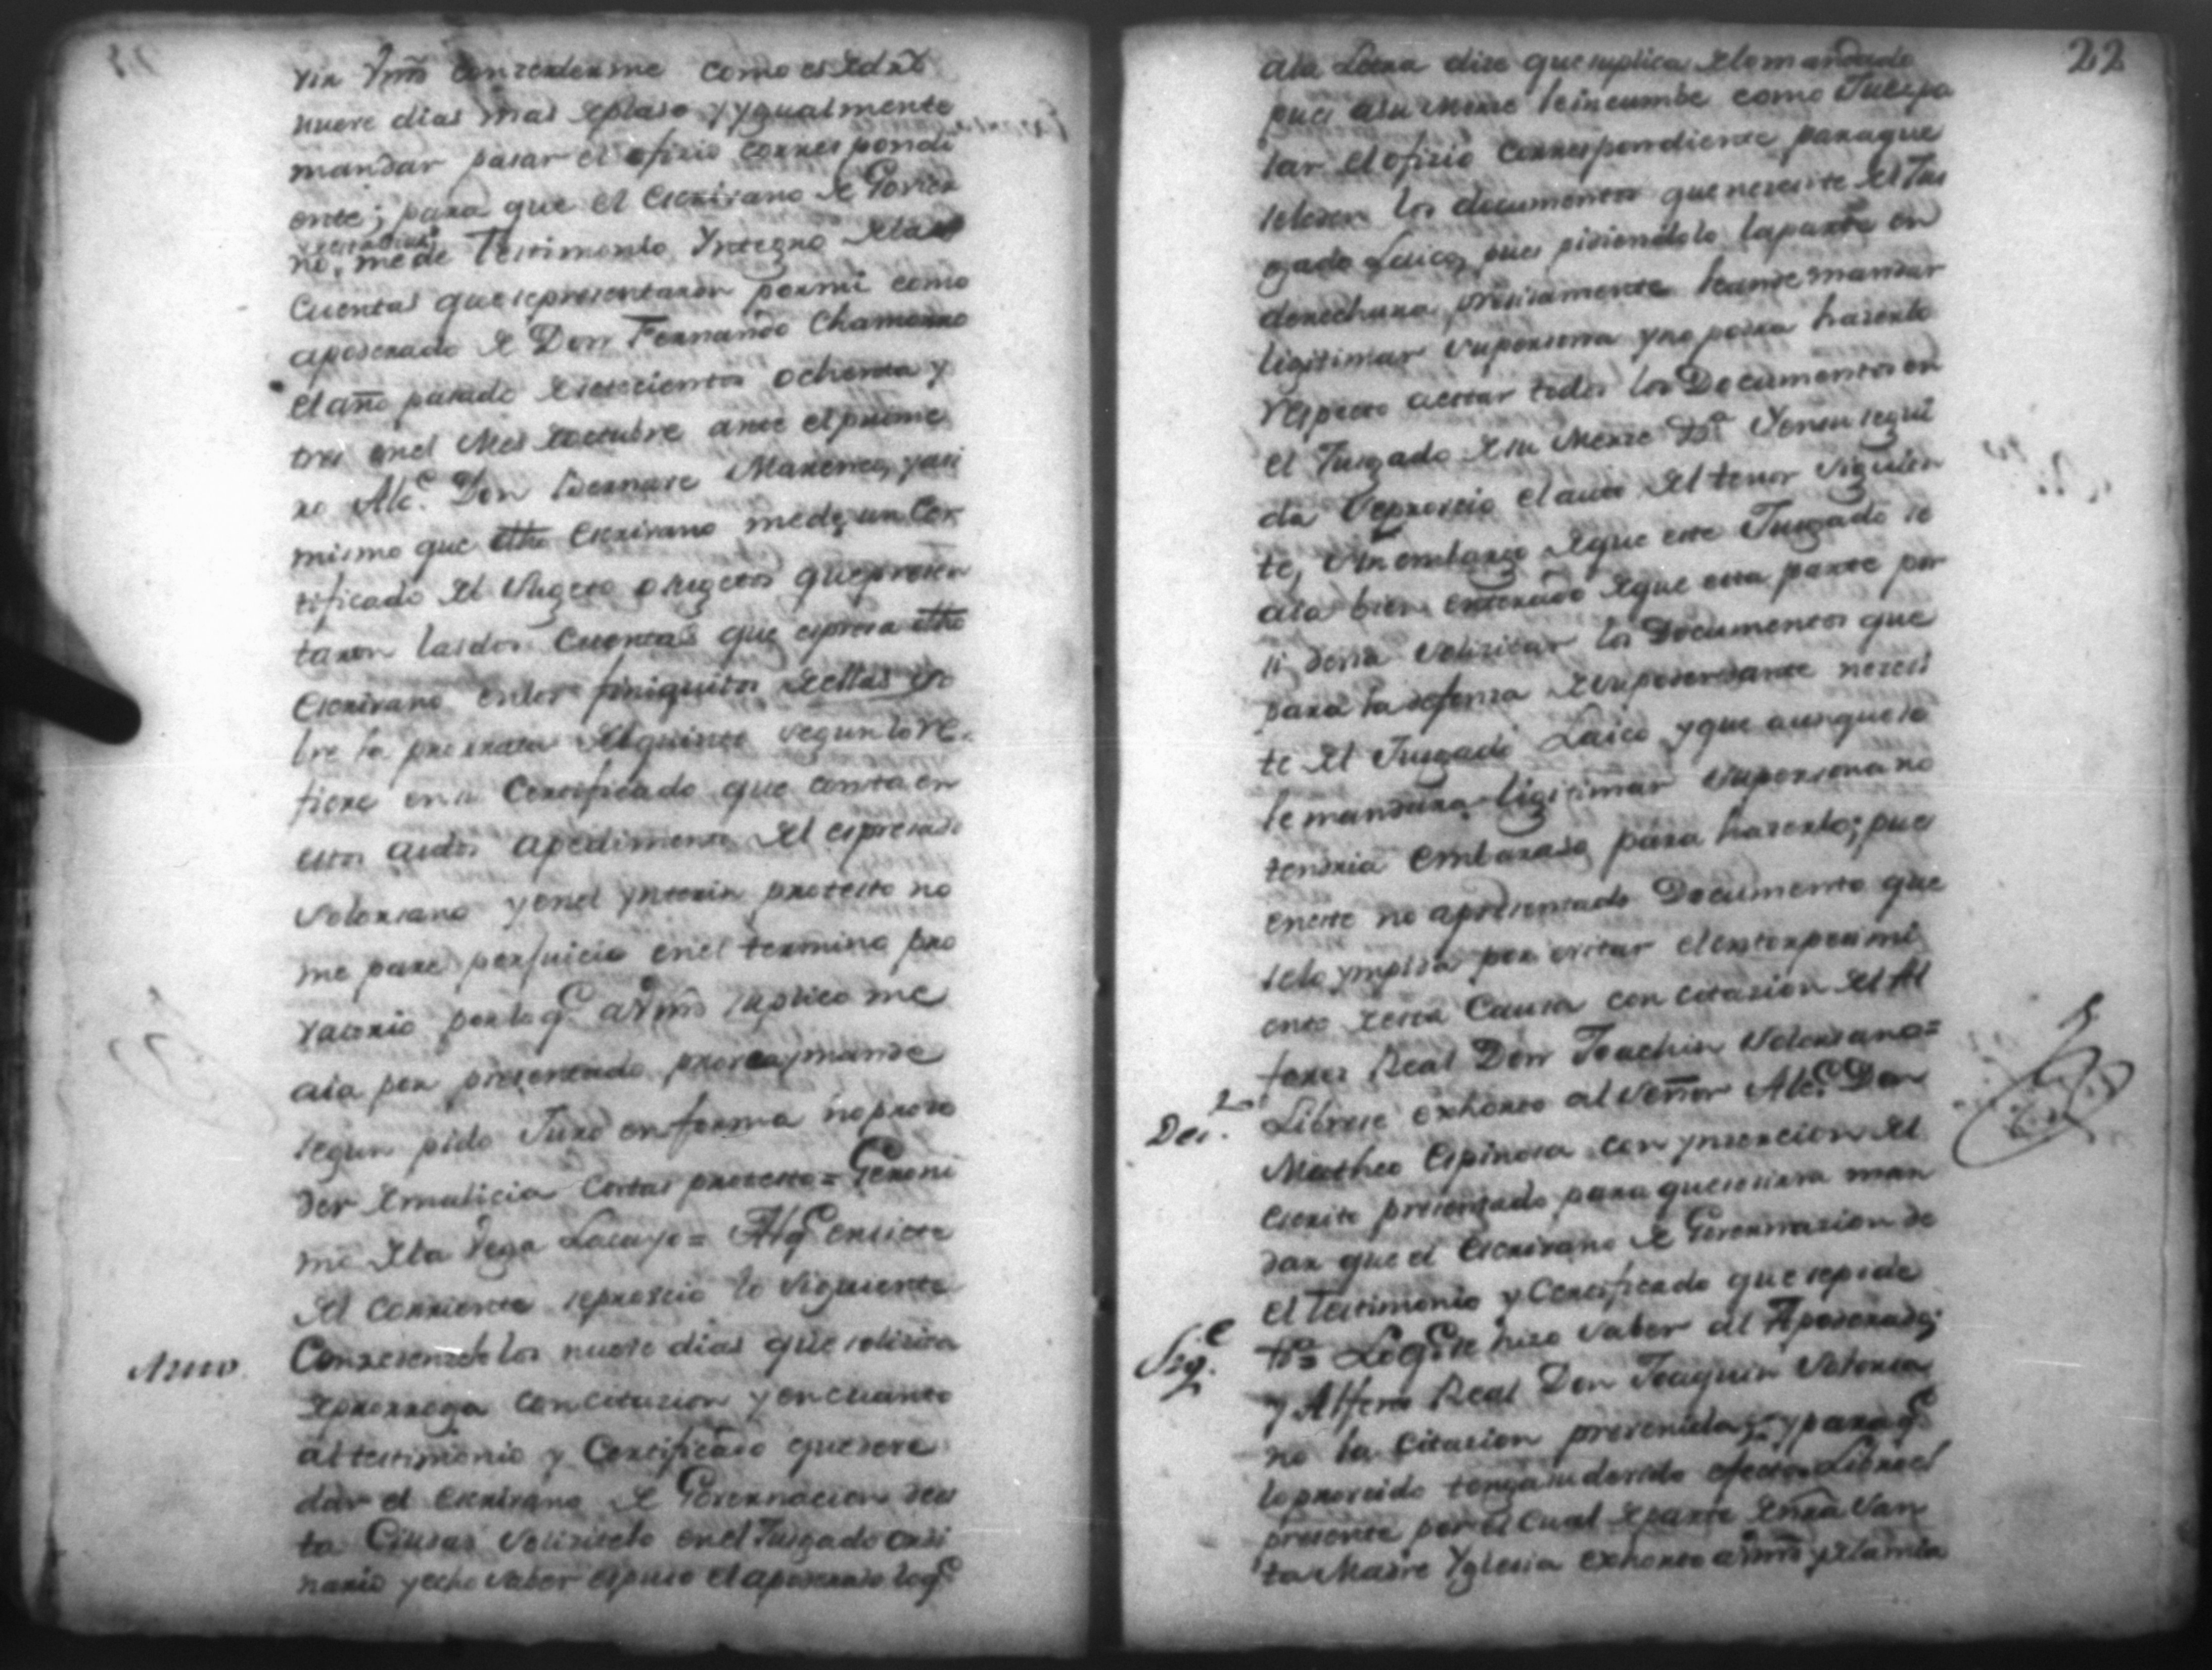 vir Vmd consederme como es de dro
nueve dias mas de plaso y ygualmente
mandar pasar el ofizio correspondi
ente; para que el Escrivano de Govier
no, me de Testimonio Yntegro de las
Cuentas que se presentaron por mi como
apoderado de Don Fernando Chamorro
el año pasado de setecientos ochenta y
tres en el Mes de octubre ante el prime
ro Alc.e Don Bernave y asi
mismo que dho Escrivano me de, un Cer
tificado del Sugeto o sugetos que presen
taron las dos Cuentas que espresa dho
Escrivano en los finiquitos de ellas so
bre la prorrata del quinto segun lo re
fiere en su Certificado que consta en
estos autos a pedimento del espresado
Solorsano y en el ynterin protesto no
me pare perjuicio en el termino pro
vatorio por lo q.e a Vmd suplico me
aia por presentado provea, y mande
segun pido Juro en forma no proce
der de malicia costas protesto = Geroni
mo de la Vega Lacayo = Al q.e en siete
del corriente se proveio lo siguiente
Auto. Consedensele los nueve dias que solisita
de prorroga con citacion y en cuanto
al testimonio y Certificado que deve
dar el Escrivano de Governacion de es
ta Ciudad solisitelo en el Jusgado ordi
nario y echo saber espuso el apoderado lo q.e
22
a la Letra dise que suplica de lo mandado
pues a su Merce le incumbe como Jues pa
sar el ofizio correspondiente para que
se le den los documentos que necesite del Jus
gado Laico, pues pidiendolo la parte en
derechura presisamente le an de mandar
legitimar su persona y no podra haserlo
respecto a estar todos los Documentos en
el Jusgado de su Merce Y en su segui
da se proveio el auto del tenor siguien
te, Sin embargo de que este Jusgado se
aia bien enterado de que esta parte por
si devia solizitar los Documentos que
para la defensa de su poderdante necesi
te del Jusgado Laico y que aunque se
le mandara legitimar su persona no
tendria embaraso para haserlo; pues
en esto no a presentado Documento que
se lo ympida por evitar el entorpesimi
ento de esta Causa con citasion del Al
feres Real Don Joachin Solorsano =
Librese exhorto al Señor Alc.e Don
Matheo Espinosa con ynsercion del
escrito presentado para que se sirva man
dar que el Escrivano de Governasion de
el testimonio y Certificado que se pide
Lo q.e se hizo saber al Apoderado;
y Alferes Real Don Joaquin Solorsa
no la citacion prevenida; y para q.e
lo proveido tenga su devido efecto Libro el
presente por el cual de parte de nra San
ta Madre Yglesia exhorto a Vmd y de la mia